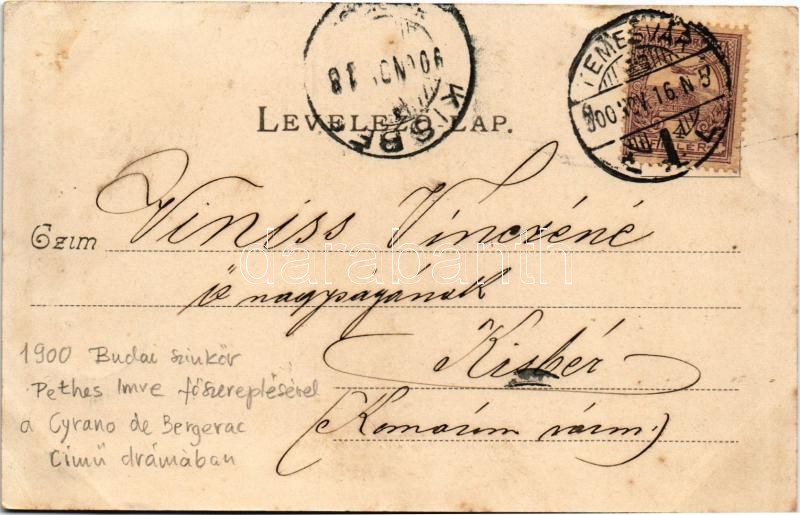 KISBÉR
900 NOV 18
TEMESVÁR
900 NOV. 16. N 5
LEVELEZŐ-LAP.
Czim Viniss Vinczéné
ő nagyságának
darabanth
Kisbér
(Komárom várm.)
1900 Budai szinkör
Pethes Imre főszereplésével
a Cyrano de Bergerac
című drámában